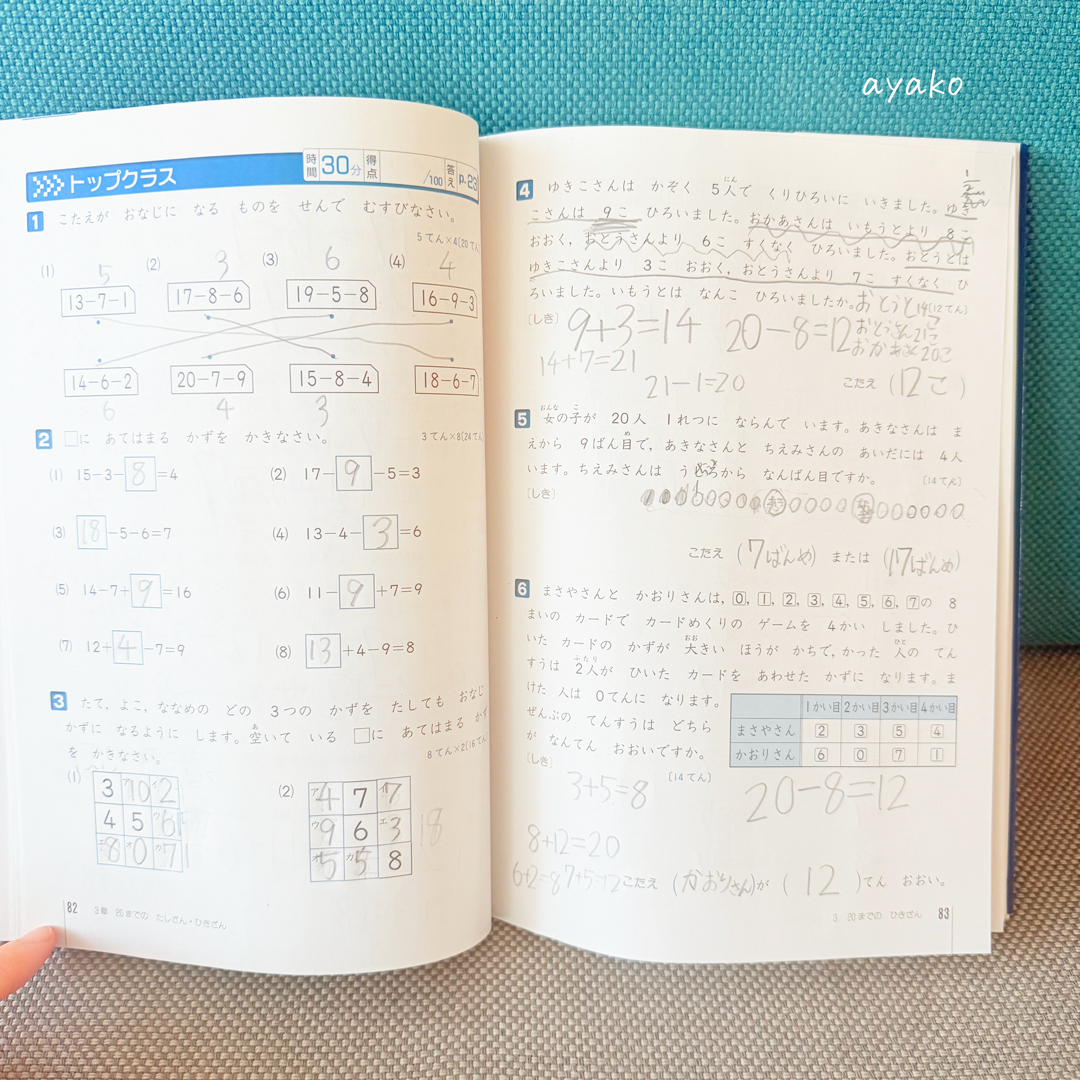 ayako
トップクラス
時間 30分 得点 /100 答え p.23
1 こたえが おなじに なる ものを せんで むすびなさい。
5てん×4(20てん)
(1) 5 (2) 3 (3) 6 (4) 4
13-7-1 17-8-6 19-5-8 16-9-3
14-6-2 20-7-9 15-8-4 18-6-7
6 4 3
2 □に あてはまる かずを かきなさい。 3てん×8(24てん)
(1) 15-3-8=4 (2) 17-9-5=3
(3) 18-5-6=7 (4) 13-4-3=6
(5) 14-7+9=16 (6) 11-9+7=9
(7) 12+4-7=9 (8) 13+4-9=8
3 たて,よこ,ななめの どの 3つの かずを たしても おなじ
かずに なるように します。空いて いる □に あてはまる かず
を かきなさい。 8てん×2(16てん)
(1) (2)
3 10 2 ア4 7 イ7
4 5 6 ウ9 6 エ3 18
8 0 7 オ5 カ5 8
82 3章 20までの たしざん・ひきざん
4 ゆきこさんは かぞく 5人で くりひろいに いきました。ゆき
こさんは 9こ ひろいました。おかあさんは いもうとより 8こ
おおく,おとうさんより 6こ すくなく ひろいました。おとうとは
ゆきこさんより 3こ おおく,おとうさんより 7こ すくなく ひ
ろいました。いもうとは なんこ ひろいましたか。おとうと14こ (12てん)
(しき) 9+3=14 20-8=12 おとうさん21こ
おかあさん20こ
14+7=21
21-1=20 こたえ (12こ)
5 女の子が 20人 1れつに ならんで います。あきなさんは ま
えから 9ばん目で,あきなさんと ちえみさんの あいだには 4人
います。ちえみさんは うしろから なんばん目ですか。 (14てん)
(しき)
こたえ (7ばんめ) または (17ばんめ)
6 まさやさんと かおりさんは,0,1,2,3,4,5,6,7の 8
まいの カードで カードめくりの ゲームを 4かい しました。ひ
いた カードの かずが 大きい ほうが かちで,かった 人の てん
すうは 2人が ひいた カードを あわせた かずに なります。ま
けた 人は 0てんに なります。
ぜんぶの てんすうは どちら
が なんてん おおいですか。
(しき) (14てん)
1かい目 2かい目 3かい目 4かい目
まさやさん 2 3 5 4
かおりさん 6 0 7 1
3+5=8 20-8=12
8+12=20
6+2=8 7+5=12 こたえ (かおりさん)が (12)てん おおい。
3 20までの ひきざん 83